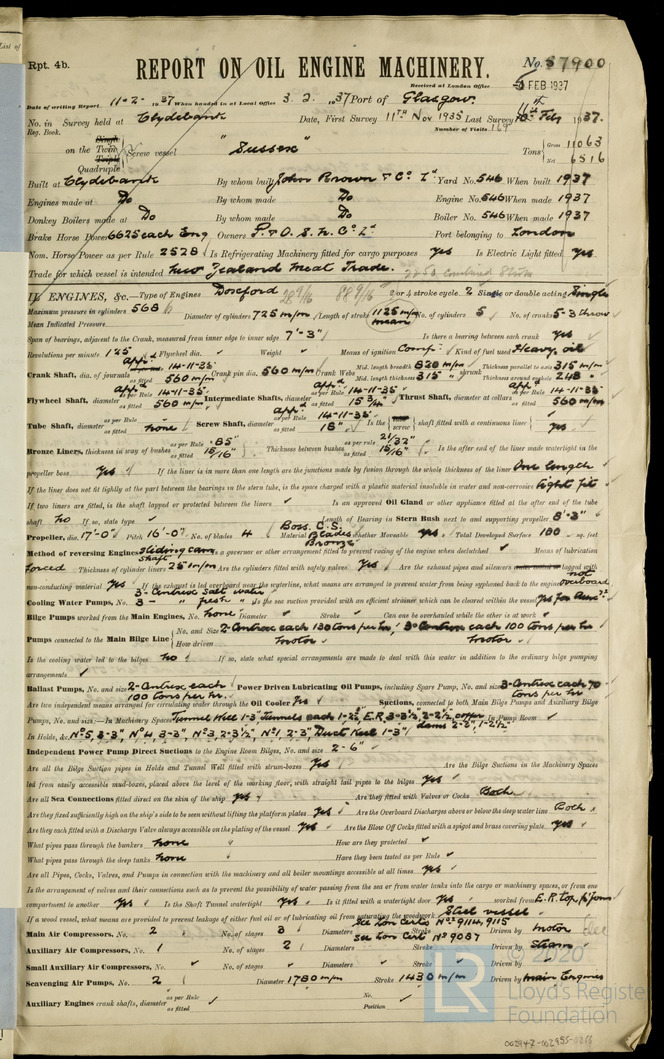 List of
Rpt. 4b.
REPORT ON OIL ENGINE MACHINERY.
No. 57900
Received at London Office
FEB 1937
Date of writing Report 11-2-1937 When handed in at Local Office 3.2.1937 Port of Glasgow
No. in Survey held at Clydebank Date, First Survey 11TH Nov 1935 Last Survey 11th Feb 1937.
Reg. Book. Number of Visits 169
on the Single Twin Triple Quadruple Screw vessel "Sussex" Tons Gross 11063 Net 6516
Built at Clydebank By whom built John Brown & Co Ld Yard No. 546 When built 1937
Engines made at Do By whom made Do Engine No. 546 When made 1937
Donkey Boilers made at Do By whom made Do Boiler No. 546 When made 1937
Brake Horse Power 6625 each Eng Owners P. & O. S. N. Co Ld Port belonging to London
Nom. Horse Power as per Rule 2528 Is Refrigerating Machinery fitted for cargo purposes yes Is Electric Light fitted yes
Trade for which vessel is intended New Zealand Meat Trade.
II. ENGINES, &c.—Type of Engines Doxford 2 or 4 stroke cycle 2 Single or double acting Single
Maximum pressure in cylinders 568 Diameter of cylinders 725 m/m Length of stroke 1125 m/m mean No. of cylinders 5 No. of cranks 5-3 throw
Mean Indicated Pressure
Span of bearings, adjacent to the Crank, measured from inner edge to inner edge 7'-3" Is there a bearing between each crank yes
Revolutions per minute 125 Flywheel dia. Weight Means of ignition Comp: Kind of fuel used Heavy oil
Crank Shaft, dia. of journals as per Rule app'd 14-11-35 as fitted 560 m/m Crank pin dia. 560 m/m Crank Webs Mid. length breadth 820 m/m Mid. length thickness 315 " shrunk Thickness parallel to axis 315 m/m Thickness around eyehole 248 "
Flywheel Shaft, diameter as per Rule app'd 14-11-35. as fitted 560 m/m Intermediate Shafts, diameter as per Rule app'd 14-11-35. as fitted 15 3/4" Thrust Shaft, diameter at collars as per Rule app'd 14-11-35 as fitted 560 m/m
Tube Shaft, diameter as per Rule as fitted none Screw Shaft, diameter as per Rule app'd 14-11-35. as fitted 18" Is the screw shaft fitted with a continuous liner yes
Bronze Liners, thickness in way of bushes as per Rule .85" as fitted 15/16" Thickness between bushes as per rule 21/32" as fitted 15/16" Is the after end of the liner made watertight in the
propeller boss yes If the liner is in more than one length are the junctions made by fusion through the whole thickness of the liner One length
If the liner does not fit tightly at the part between the bearings in the stern tube, is the space charged with a plastic material insoluble in water and non-corrosive tight fit
If two liners are fitted, is the shaft lapped or protected between the liners Is an approved Oil Gland or other appliance fitted at the after end of the tube
shaft no If so, state type Length of Bearing in Stern Bush next to and supporting propeller 8'-3"
Propeller, dia. 17'-0" Pitch 16'-0" No. of blades 4 Material Boss. C.S. Blades Bronze whether Moveable yes Total Developed Surface 100 sq. feet
Method of reversing Engines Sliding cam shaft Is a governor or other arrangement fitted to prevent racing of the engine when declutched Means of lubrication
forced Thickness of cylinder liners 25 m/m Are the cylinders fitted with safety valves yes Are the exhaust pipes and silencers lagged with
non-conducting material yes If the exhaust is led overboard near the waterline, what means are arranged to prevent water from being syphoned back to the engine not overboard
Cooling Water Pumps, No. 3-Centrex Salt water 3- " fresh " Is the sea suction provided with an efficient strainer which can be cleared within the vessel yes
Bilge Pumps worked from the Main Engines, No. none Diameter Stroke Can one be overhauled while the other is at work
Pumps connected to the Main Bilge Line No. and Size 2-Centrex each 130 tons per hr, 3-Centrex each 100 tons per hr
How driven motor motor
Is the cooling water led to the bilges no If so, state what special arrangements are made to deal with this water in addition to the ordinary bilge pumping
arrangements
Ballast Pumps, No. and size 2-Centrex each 100 tons per hr. Power Driven Lubricating Oil Pumps, including Spare Pump, No. and size 3-Centrex each 70 tons per hr
Are two independent means arranged for circulating water through the Oil Cooler yes Suctions, connected to both Main Bilge Pumps and Auxiliary Bilge
Pumps, No. and size:—In Machinery Spaces Tunnel Well 1-3" Tunnels each 1-2½", E.R. 3-3½", 2-2½ coffer dams 2-2", 1-2½" In Pump Room
In Holds, &c. No 5, 3-3", No 4, 3-3", No 3, 2-3½", No 1, 2-3" Duct Keel 1-3"
Independent Power Pump Direct Suctions to the Engine Room Bilges, No. and size 2-6"
Are all the Bilge Suction pipes in Holds and Tunnel Well fitted with strum-boxes yes Are the Bilge Suctions in the Machinery Spaces
led from easily accessible mud-boxes, placed above the level of the working floor, with straight tail pipes to the bilges yes
Are all Sea Connections fitted direct on the skin of the ship yes Are they fitted with Valves or Cocks Both
Are they fixed sufficiently high on the ship's side to be seen without lifting the platform plates yes Are the Overboard Discharges above or below the deep water line Both
Are they each fitted with a Discharge Valve always accessible on the plating of the vessel yes Are the Blow Off Cocks fitted with a spigot and brass covering plate yes
What pipes pass through the bunkers none How are they protected
What pipes pass through the deep tanks none Have they been tested as per Rule
Are all Pipes, Cocks, Valves, and Pumps in connection with the machinery and all boiler mountings accessible at all times yes
Is the arrangement of valves and their connections such as to prevent the possibility of water passing from the sea or from water tanks into the cargo or machinery spaces, or from one
compartment to another yes Is the Shaft Tunnel watertight yes Is it fitted with a watertight door yes worked from E.R. top p'form
If a wood vessel, what means are provided to prevent leakage of either fuel oil or of lubricating oil from saturating the woodwork Steel vessel
Main Air Compressors, No. 2 No. of stages 3 Diameters See Lon Certs Nos 9114, 9115 Stroke Driven by motor
Auxiliary Air Compressors, No. 1 No. of stages 2 Diameters See Lon Cert No 9037 Stroke Driven by steam
Small Auxiliary Air Compressors, No. No. of stages Diameters Stroke Driven by
Scavenging Air Pumps, No. 2 Diameter 1780 m/m Stroke 1430 m/m Driven by main Engines
Auxiliary Engines crank shafts, diameter as per Rule as fitted No. Position
© 2020
LR Lloyd's Register
Foundation
002942-002955-0256